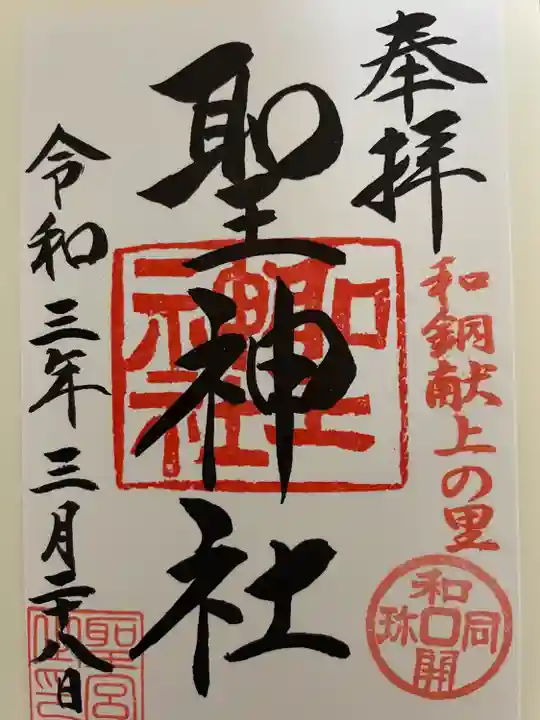 奉拝
和銅献上の里
和同開珎
聖神社
聖神社
令和三年三月二十八日